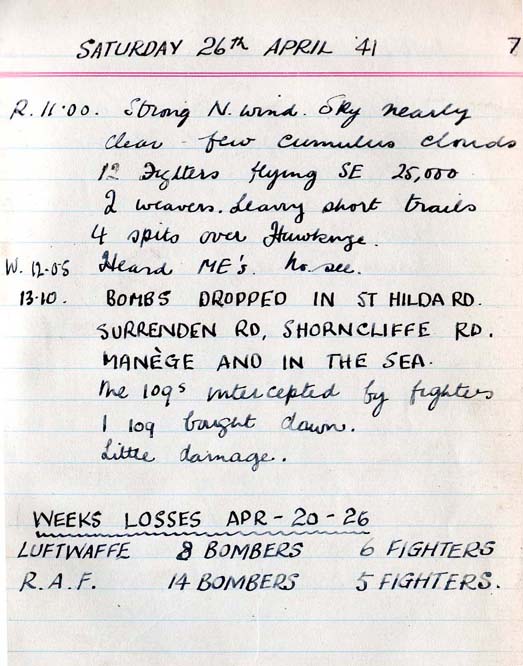 SATURDAY 26th APRIL '41 7
R. 11·00. Strong N. wind. Sky nearly
clear - few cumulus clouds
12 Fighters flying SE 25,000
2 weavers. Leavg short trails
4 spits over Hawknge.
W. 12·05 Heard ME's. No see.
13·10. BOMBS DROPPED IN ST HILDA RD.
SURRENDEN RD, SHORNCLIFFE RD.
MANÈGE AND IN THE SEA.
Me 109s intercepted by fighters
1 109 bought down.
Little damage.
WEEKS LOSSES APR - 20 - 26
LUFTWAFFE 8 BOMBERS 6 FIGHTERS
R.A.F. 14 BOMBERS 5 FIGHTERS.